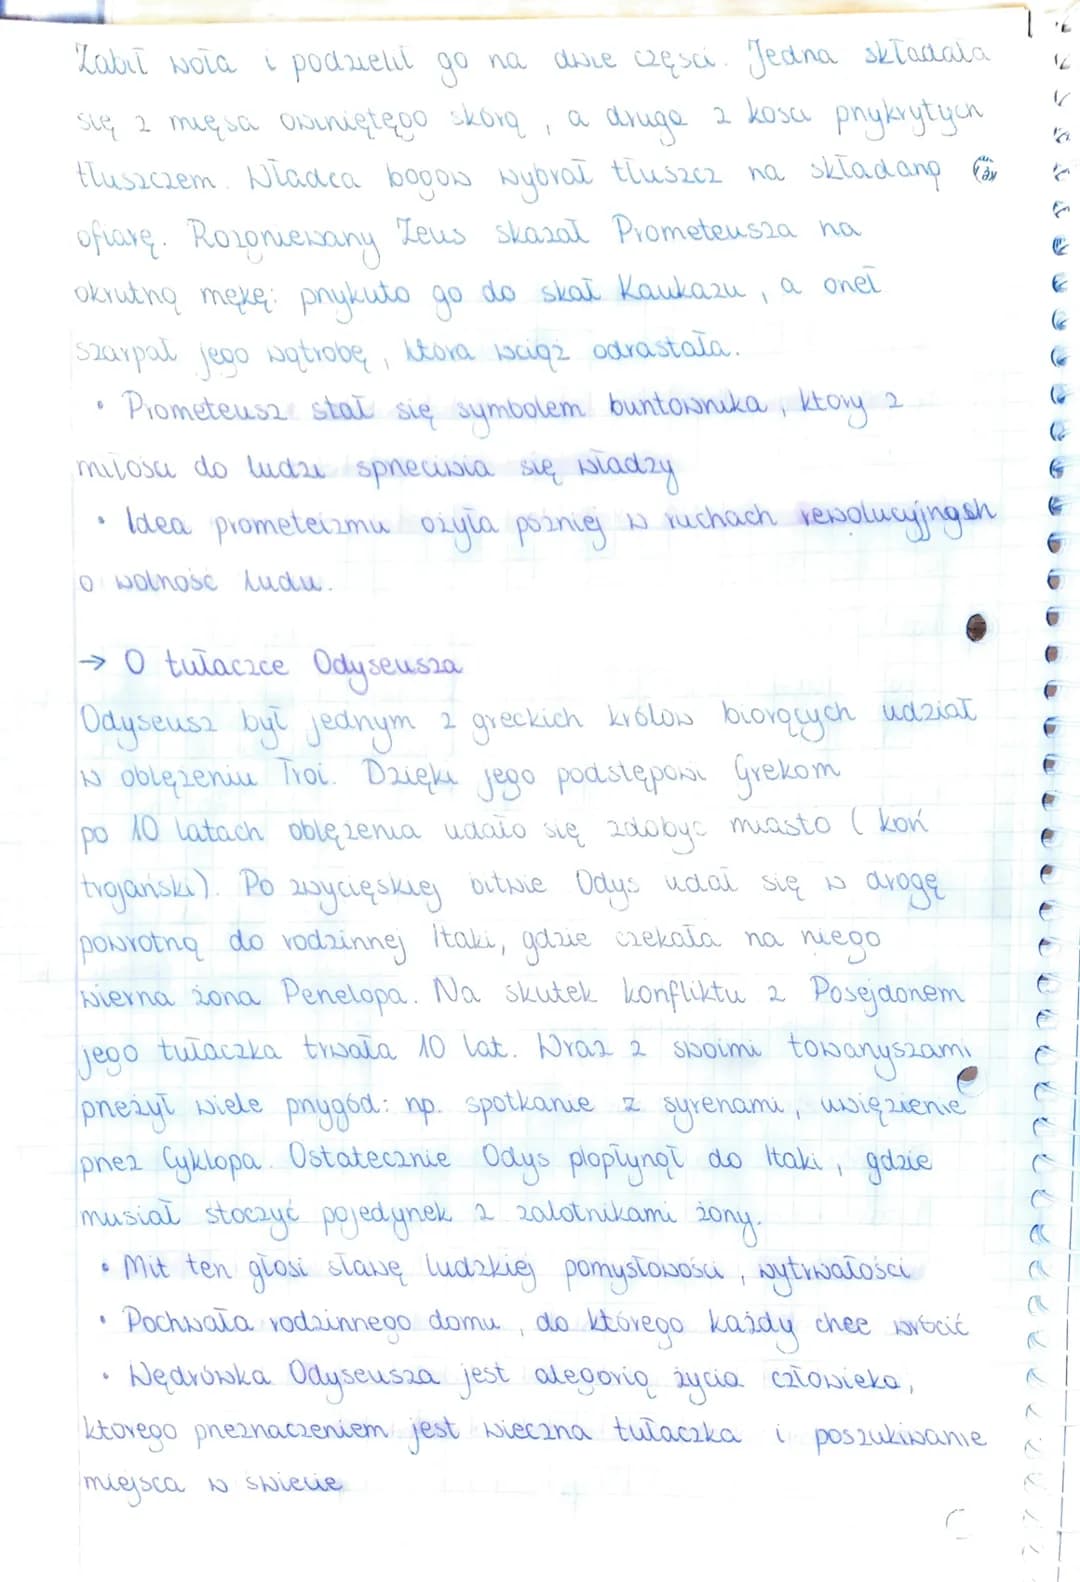 Zabił woła i podzielił go na dwie części. Jedna składała
się z mięsa owiniętego skórą, a druga z kości przykrytych
tłuszczem. Władca bogów wybrał tłuszcz na składaną
ofiarę. Rozgniewany Zeus skazał Prometeusza na
okrutną mękę: przykuto go do skał Kaukazu, a orzeł
szarpał jego wątrobę, która wciąż odrastała.
• Prometeusz stał się symbolem buntownika, który z
miłości do ludzi sprzeciwia się władzy
• Idea prometeizmu ożyła później w ruchach rewolucyjnysh
o wolność ludu.
→ O tułaczce Odyseusza
Odyseusz był jednym z greckich królów biorących udział
w oblężeniu Troi. Dzięki jego podstępowi Grekom
po 10 latach oblężenia udało się zdobyć miasto (koń
trojański). Po zwycięskiej bitwie Odys udał się w drogę
powrotną do rodzinnej Itaki, gdzie czekała na niego
wierna żona Penelopa. Na skutek konfliktu z Posejdonem
jego tułaczka trwała 10 lat. Wraz z swoimi towarzyszami
przeżył wiele przygód: np. spotkanie z syrenami, uwięzienie
przez Cyklopa. Ostatecznie Odys plopłynął do Itaki, gdzie
musiał stoczyć pojedynek z zalotnikami żony.
• Mit ten głosi sławę ludzkiej pomysłowości, wytrwałości
• Pochwała rodzinnego domu, do którego każdy chce wrócić
• Wędrówka Odyseusza jest alegorią życia człowieka,
którego przeznaczeniem jest wieczna tułaczka i poszukiwanie
miejsca w świecie